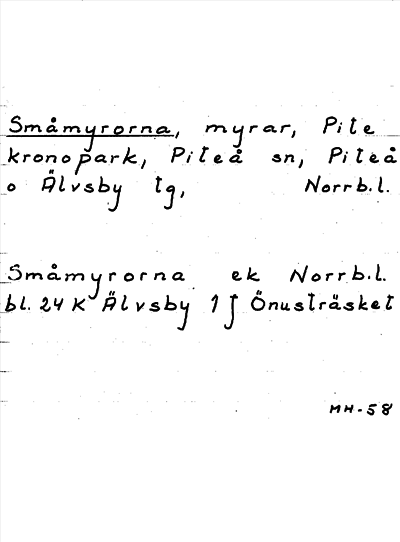 Småmyrorna, myrar, Pite
kronopark, Piteå sn, Piteå
o Älvsby tg, Norrb.l.
Småmyrorna ek Norrb.l.
bl. 24 K Älvsby 1 f Önusträsket
MH-58